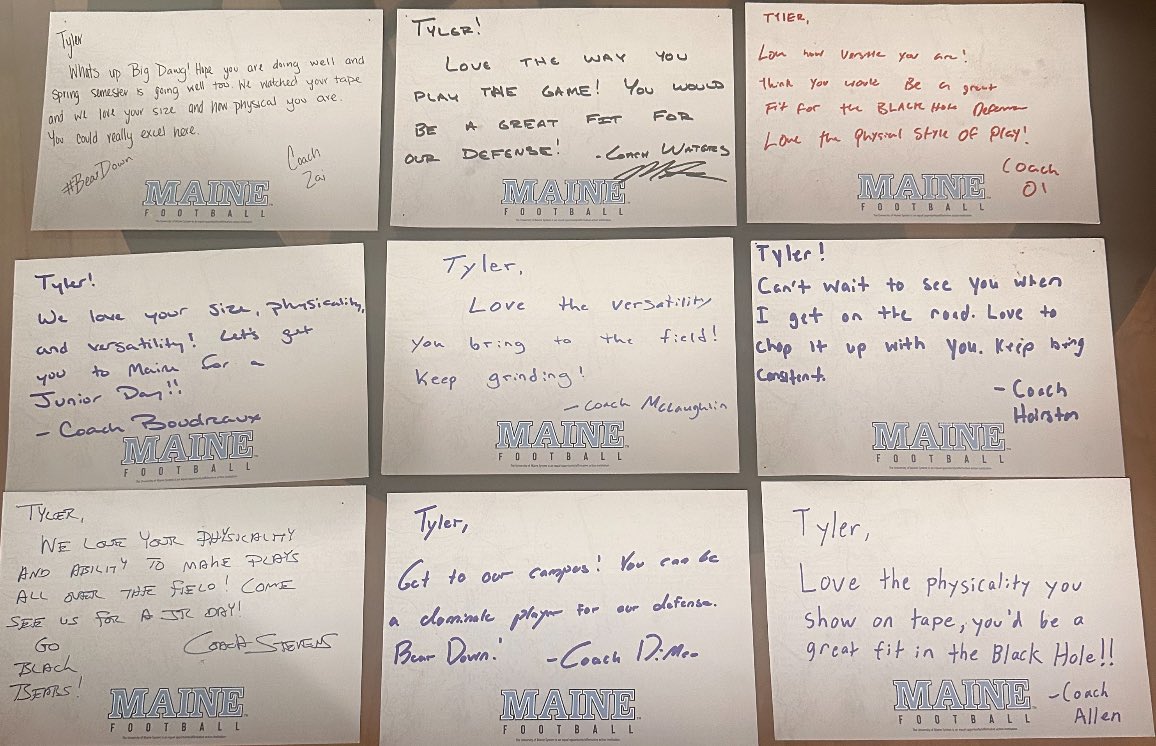 Tyler
Whats up Big Dawg! Hope you are doing well and
Spring semester is going well too. We watched your tape
and we love your size and how physical you are.
You could really excel here.
#BearDown
Coach
Zai
MAINE
FOOTBALL
TYLER!
LOVE THE WAY YOU
PLAY THE GAME! YOU WOULD
BE A GREAT FIT FOR
OUR DEFENSE! -COACH WATERS
MAINE
FOOTBALL
TYLER,
Love how versatile you are!
Think you would Be a great
Fit for the BLACK HOLE Defense
Love the Physical Style OF Play!
Coach
O1
MAINE
FOOTBALL
Tyler!
We love your size, physicality,
and versatility! Let's get
you to Maine for a
Junior Day!!
- Coach Boudreaux
MAINE
FOOTBALL
Tyler,
Love the versatility
you bring to the field!
Keep grinding!
- Coach McLaughlin
MAINE
FOOTBALL
Tyler!
Can't wait to see you when
I get on the road. Love to
chop it up with you. Keep bring
consitent.
- Coach
Hairston
MAINE
FOOTBALL
TYLER,
WE LOVE YOUR PHYSICALITY
AND ABILITY TO MAKE PLAYS
ALL OVER THE FIELD! COME
SEE US FOR A JR DAY!
GO
BLACK
BEARS!
COACH STEVENS
MAINE
FOOTBALL
Tyler,
Get to our campus! You can be
a dominate player for our defense.
Bear Down! -Coach DiMeo
MAINE
FOOTBALL
Tyler,
Love the physicality you
show on tape, you'd be a
great fit in the Black Hole!!
-Coach
Allen
MAINE
FOOTBALL